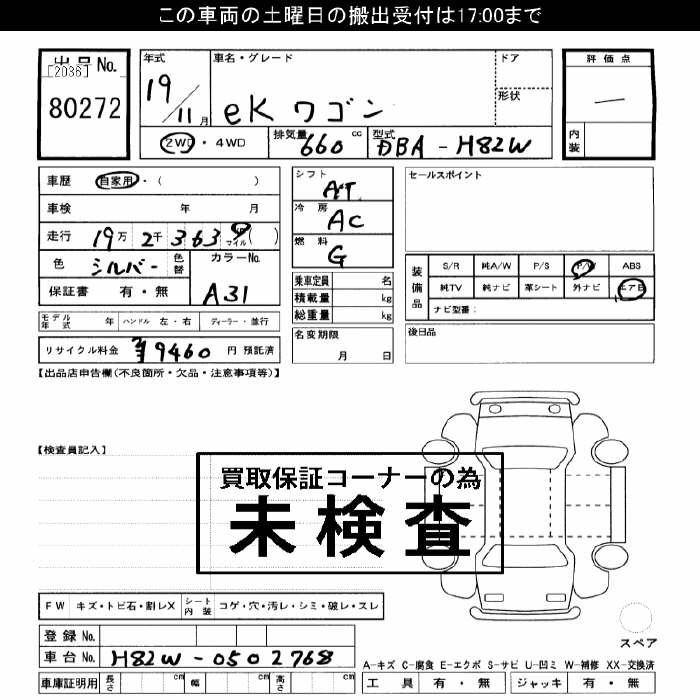 この車両の土曜日の搬出受付は17:00まで
出品No.
[2036]
80272
年式
19/11月
車名・グレード
eK ワゴン
ドア
形状
評価点
―
内装
2WD・4WD
排気量 660 cc
型式 DBA-H82W
車歴 自家用・( )
車検 年 月
走行 19万 2千 3639 マイル( )
色 シルバー 色替
カラーNo.
A31
保証書 有・無
モデル年式 年 ハンドル 左・右 ディーラー・並行
リサイクル料金 ¥9460 円 預託済
シフト AT
冷房 AC
燃料 G
乗車定員 名
積載量 kg
総重量 kg
名変期限
月 日
セールスポイント
装備品
S/R 純A/W P/S P/W ABS
純TV 純ナビ 革シート 外ナビ エアB
ナビ型番:
後日品
【出品店申告欄(不良箇所・欠品・注意事項等)】
【検査員記入】
買取保証コーナーの為
未検査
FW キズ・トビ石・割レX シート内装 コゲ・穴・汚レ・シミ・破レ・スレ
登録No.
車台No. H82W-0502768
車庫証明用 長さ cm 幅 cm 高さ cm
スペア
A-キズ C-腐食 E-エクボ S-サビ U-凹ミ W-補修 XX-交換済
工具 有・無 ジャッキ 有・無